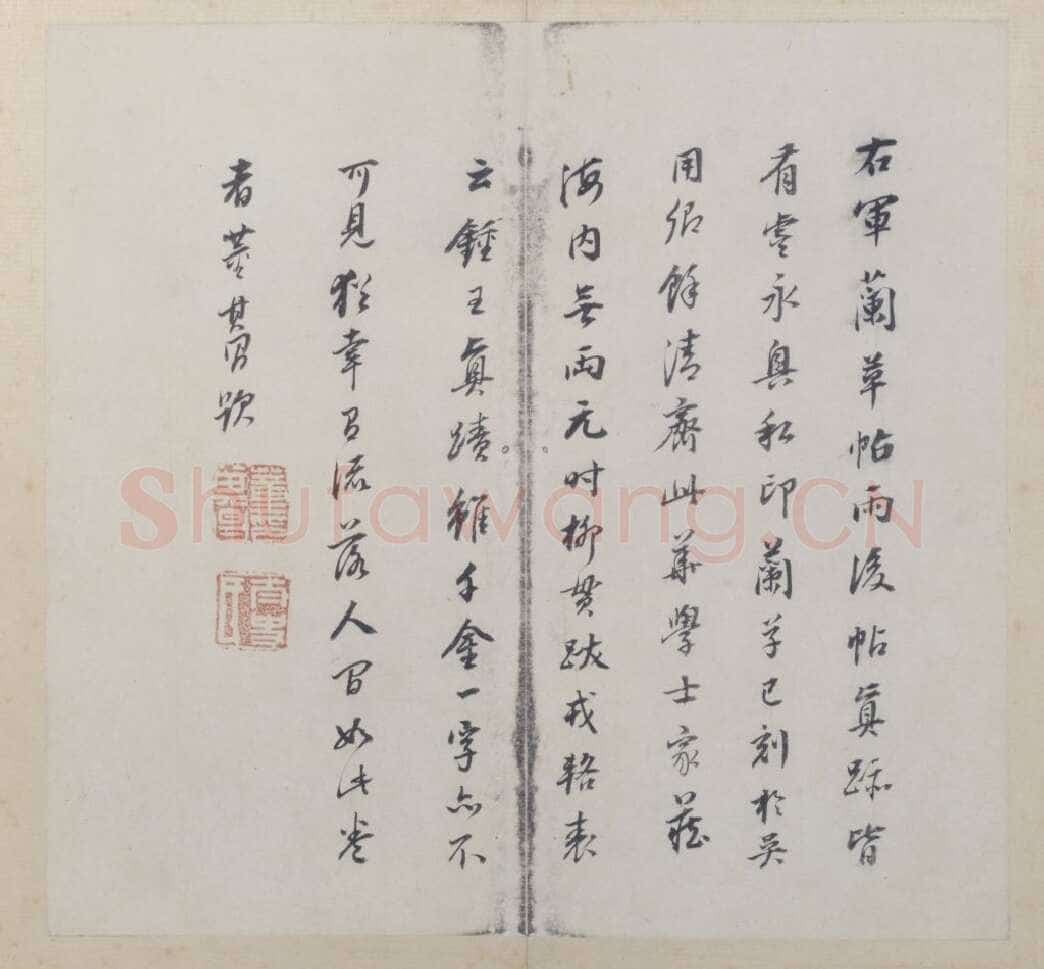 右軍蘭草帖雨後帖真跡皆
有虞永興私印蘭草已刻於吳
用卿餘清齋此華學士家藏
海内無兩元時柳貫跋戎輅表
云鍾王真蹟雖千金一字亦不
可見猶幸有流落人間如此卷
者董其昌題
Shufawang.CN